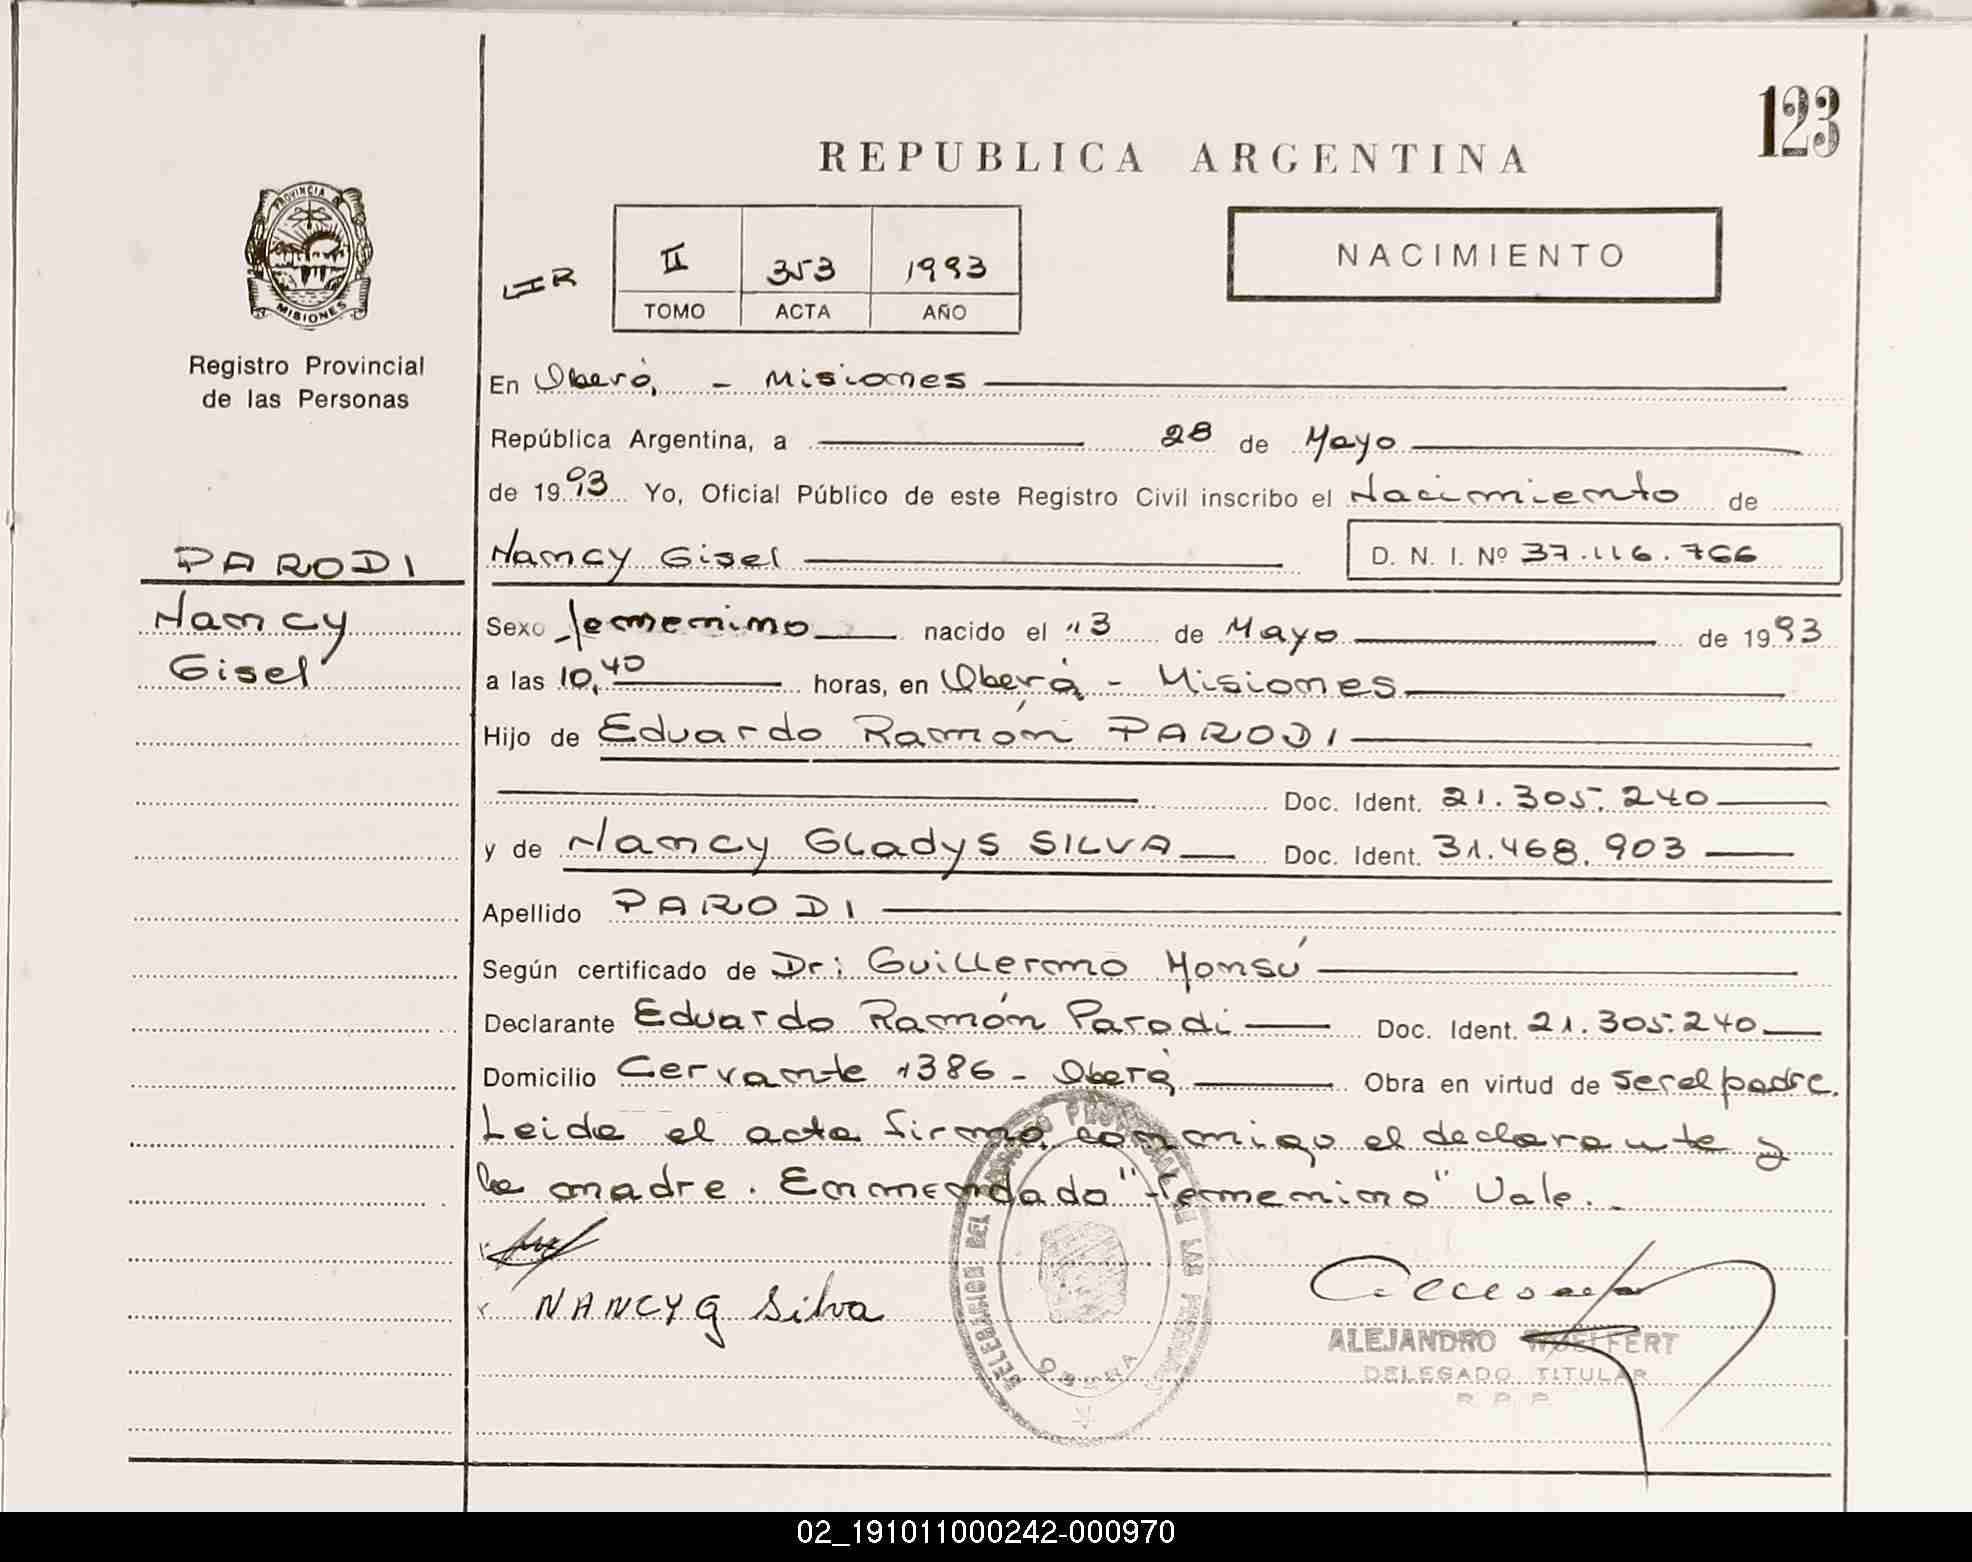 123
REPUBLICA ARGENTINA
NACIMIENTO
II 353 1993
TOMO ACTA AÑO
PROVINCIA DE
MISIONES
Registro Provincial
de las Personas
En Oberá, - Misiones
República Argentina, a 28 de Mayo
de 1993 Yo, Oficial Público de este Registro Civil inscribo el Nacimiento de
PARODI
Nancy Gisel D. N. I. Nº 37.116.766
Nancy
Gisel
Sexo femenino nacido el 13 de Mayo de 1993
a las 10,40 horas, en Oberá - Misiones
Hijo de Eduardo Ramón PARODI
Doc. Ident. 21.305.240
y de Nancy Gladys SILVA Doc. Ident. 31.468.903
Apellido PARODI
Según certificado de Dr: Guillermo Monsú
Declarante Eduardo Ramón Parodi Doc. Ident. 21.305.240
Domicilio Cervante 1386 - Oberá Obra en virtud de ser el padre.
Leida el acta firma conmigo el declarante y
la madre. Enmendado "femenino" Vale.
NANCY G Silva
DELEGACION DEL REGISTRO PROVINCIAL DE LAS PERSONAS
OBERA
ALEJANDRO WOELFERT
DELEGADO TITULAR
R. P. P.
02_191011000242-000970